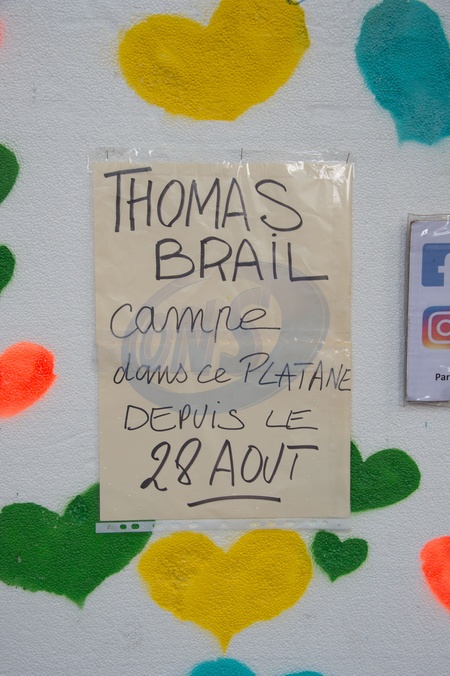 THOMAS
BRAIL
campe
dans ce PLATANE
DEPUIS LE
28 AOUT
GNSA
Par